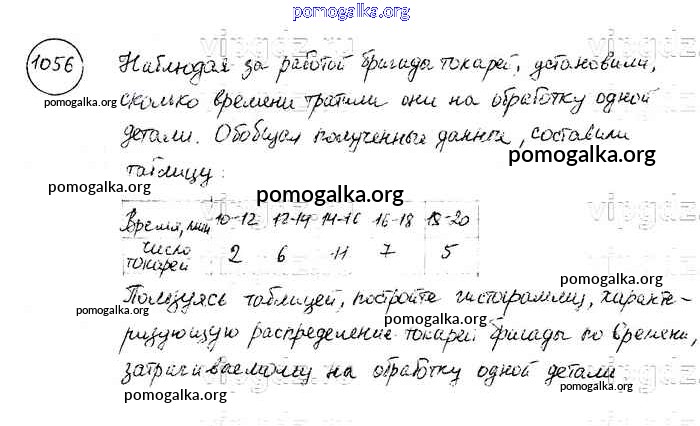 pomogalka.org
1056 Наблюдая за работой бригады токарей, установили,
pomogalka.org
сколько времени тратили они на обработку одной
детали. Обобщая полученные данные, составили
pomogalka.org
таблицу:
pomogalka.org
pomogalka.org
Время, мин 10-12 12-14 14-16 16-18 18-20
число токарей 2 6 11 7 5
pomogalka.org
Пользуясь таблицей, постройте гистограмму, характе-
pomogalka.org
ризующую распределение токарей бригады по времени,
pomogalka.org
затрачиваемому на обработку одной детали
pomogalka.org
pomogalka.org